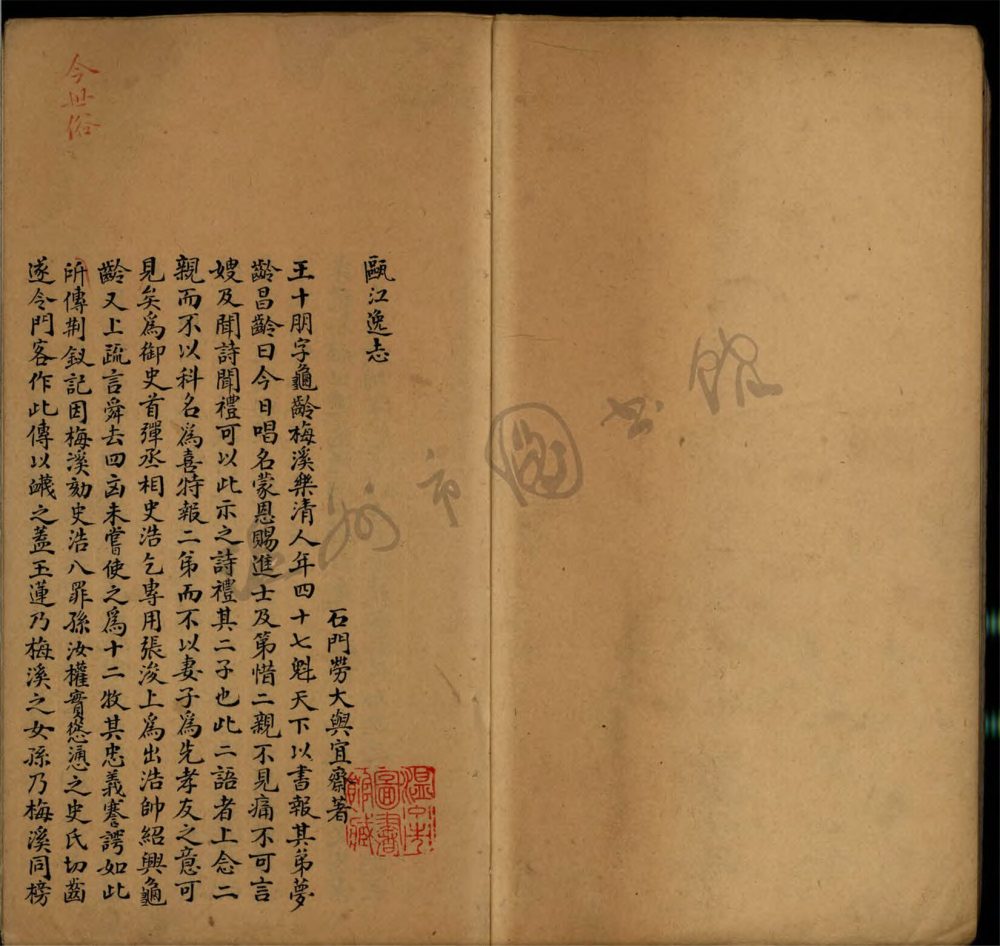 甌江逸志
石門勞大與宜齋著
王十朋字龜齡梅溪樂清人年四十七魁天下以書報其弟夢
齡昌齡曰今日唱名蒙恩賜進士及第惜二親不見痛不可言
嫂及聞詩聞禮可以此示之詩禮其二子也此二語者上念二
親而不以科名爲喜特報二弟而不以妻子爲先孝友之意可
見矣爲御史首彈丞相史浩乞專用張浚上爲出浩帥紹興龜
齡又上疏言舜去四凶未嘗使之爲十二牧其忠義謇諤如此
所傳荆釵記因梅溪劾史浩八罪孫汝權實慫慂之史氏切齒
遂令門客作此傳以衊之蓋玉蓮乃梅溪之女孫乃梅溪同榜
今世俗
溫州市圖書館藏
溫州市圖書館